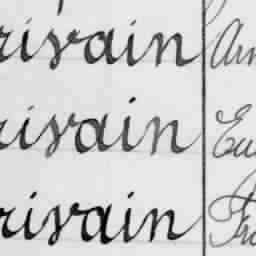 rivain Arn
rivain Eu
rivain Fra